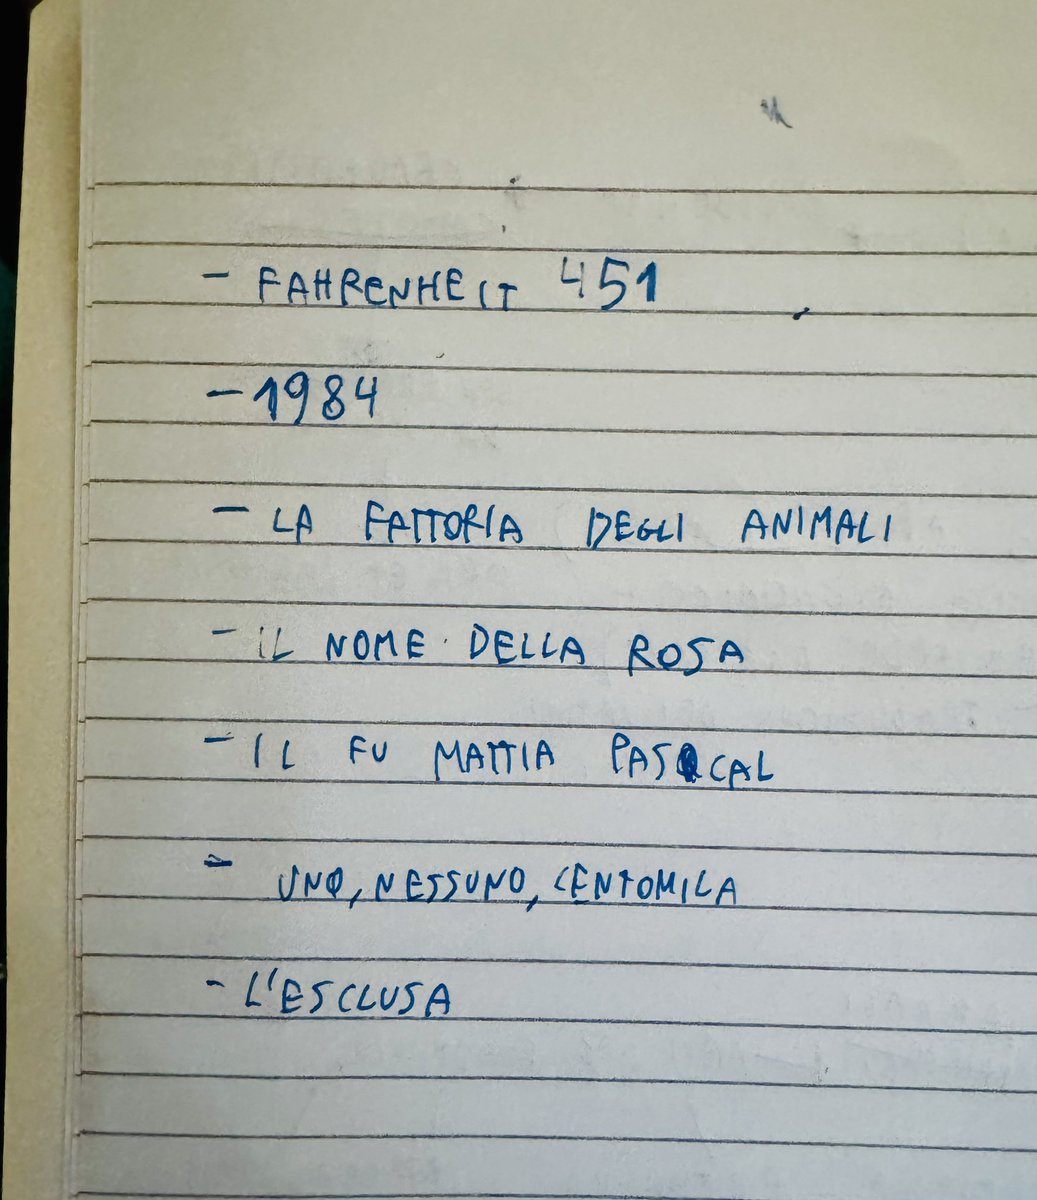 - FAHRENHEIT 451
- 1984
- LA FATTORIA DEGLI ANIMALI
- IL NOME DELLA ROSA
- IL FU MATTIA PASCAL
- UNO, NESSUNO, CENTOMILA
- L'ESCLUSA